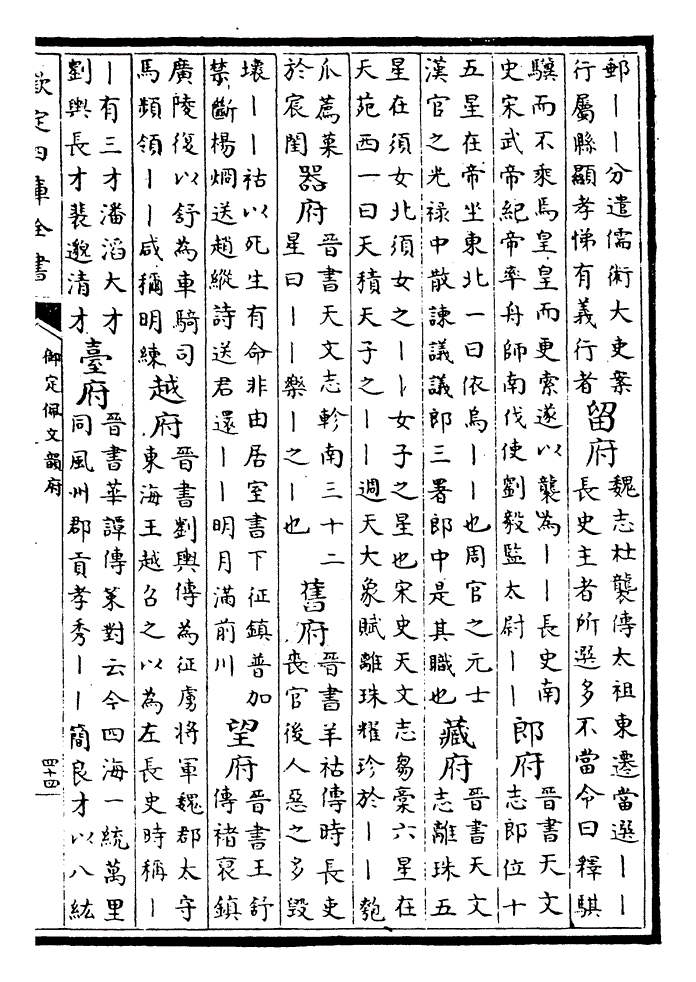 郵丨丨分遣儒術大吏案行屬縣顯孝悌有義行者 留府 魏志杜襲傳太祖東遷當選丨丨長史主者所選多不當令曰釋騏
驥而不乘馬皇皇而更索遂以襲為丨丨長史南史宋武帝紀帝率舟師南伐使劉毅監太尉丨丨 郎府 晉書天文志郎位十
五星在帝坐東北一曰依烏丨丨也周官之元士漢官之光祿中散諫議議郎三署郎中是其職也 藏府 晉書天文志離珠五
星在須女北須女之丨丨女子之星也宋史天文志芻藁六星在天苑西一曰天積天子之丨丨週天大象賦離珠耀珍於丨丨匏
爪薦菓於宸闈 器府 晉書天文志軫南三十二星曰丨丨樂丨之丨也 舊府 晉書羊祜傳時長吏喪官後人惡之多毀
壞丨丨祜以死生有命非由居室書下征鎮普加禁斷楊烱送趙縱詩送君還丨丨明月滿前川 望府 晉書王舒傳褚裒鎮
廣陵復以舒為車騎司馬頻領丨丨咸稱明練 越府 晉書劉輿傳為征虜將軍魏郡太守東海王越召之以為左長史時稱丨
丨有三才潘滔大才劉輿長才裴邈清才 臺府 晉書華譚傳策對云今四海一統萬里同風州郡貢孝秀丨丨簡良才以八紘
欽定四庫全書
御定佩文韻府
四十四